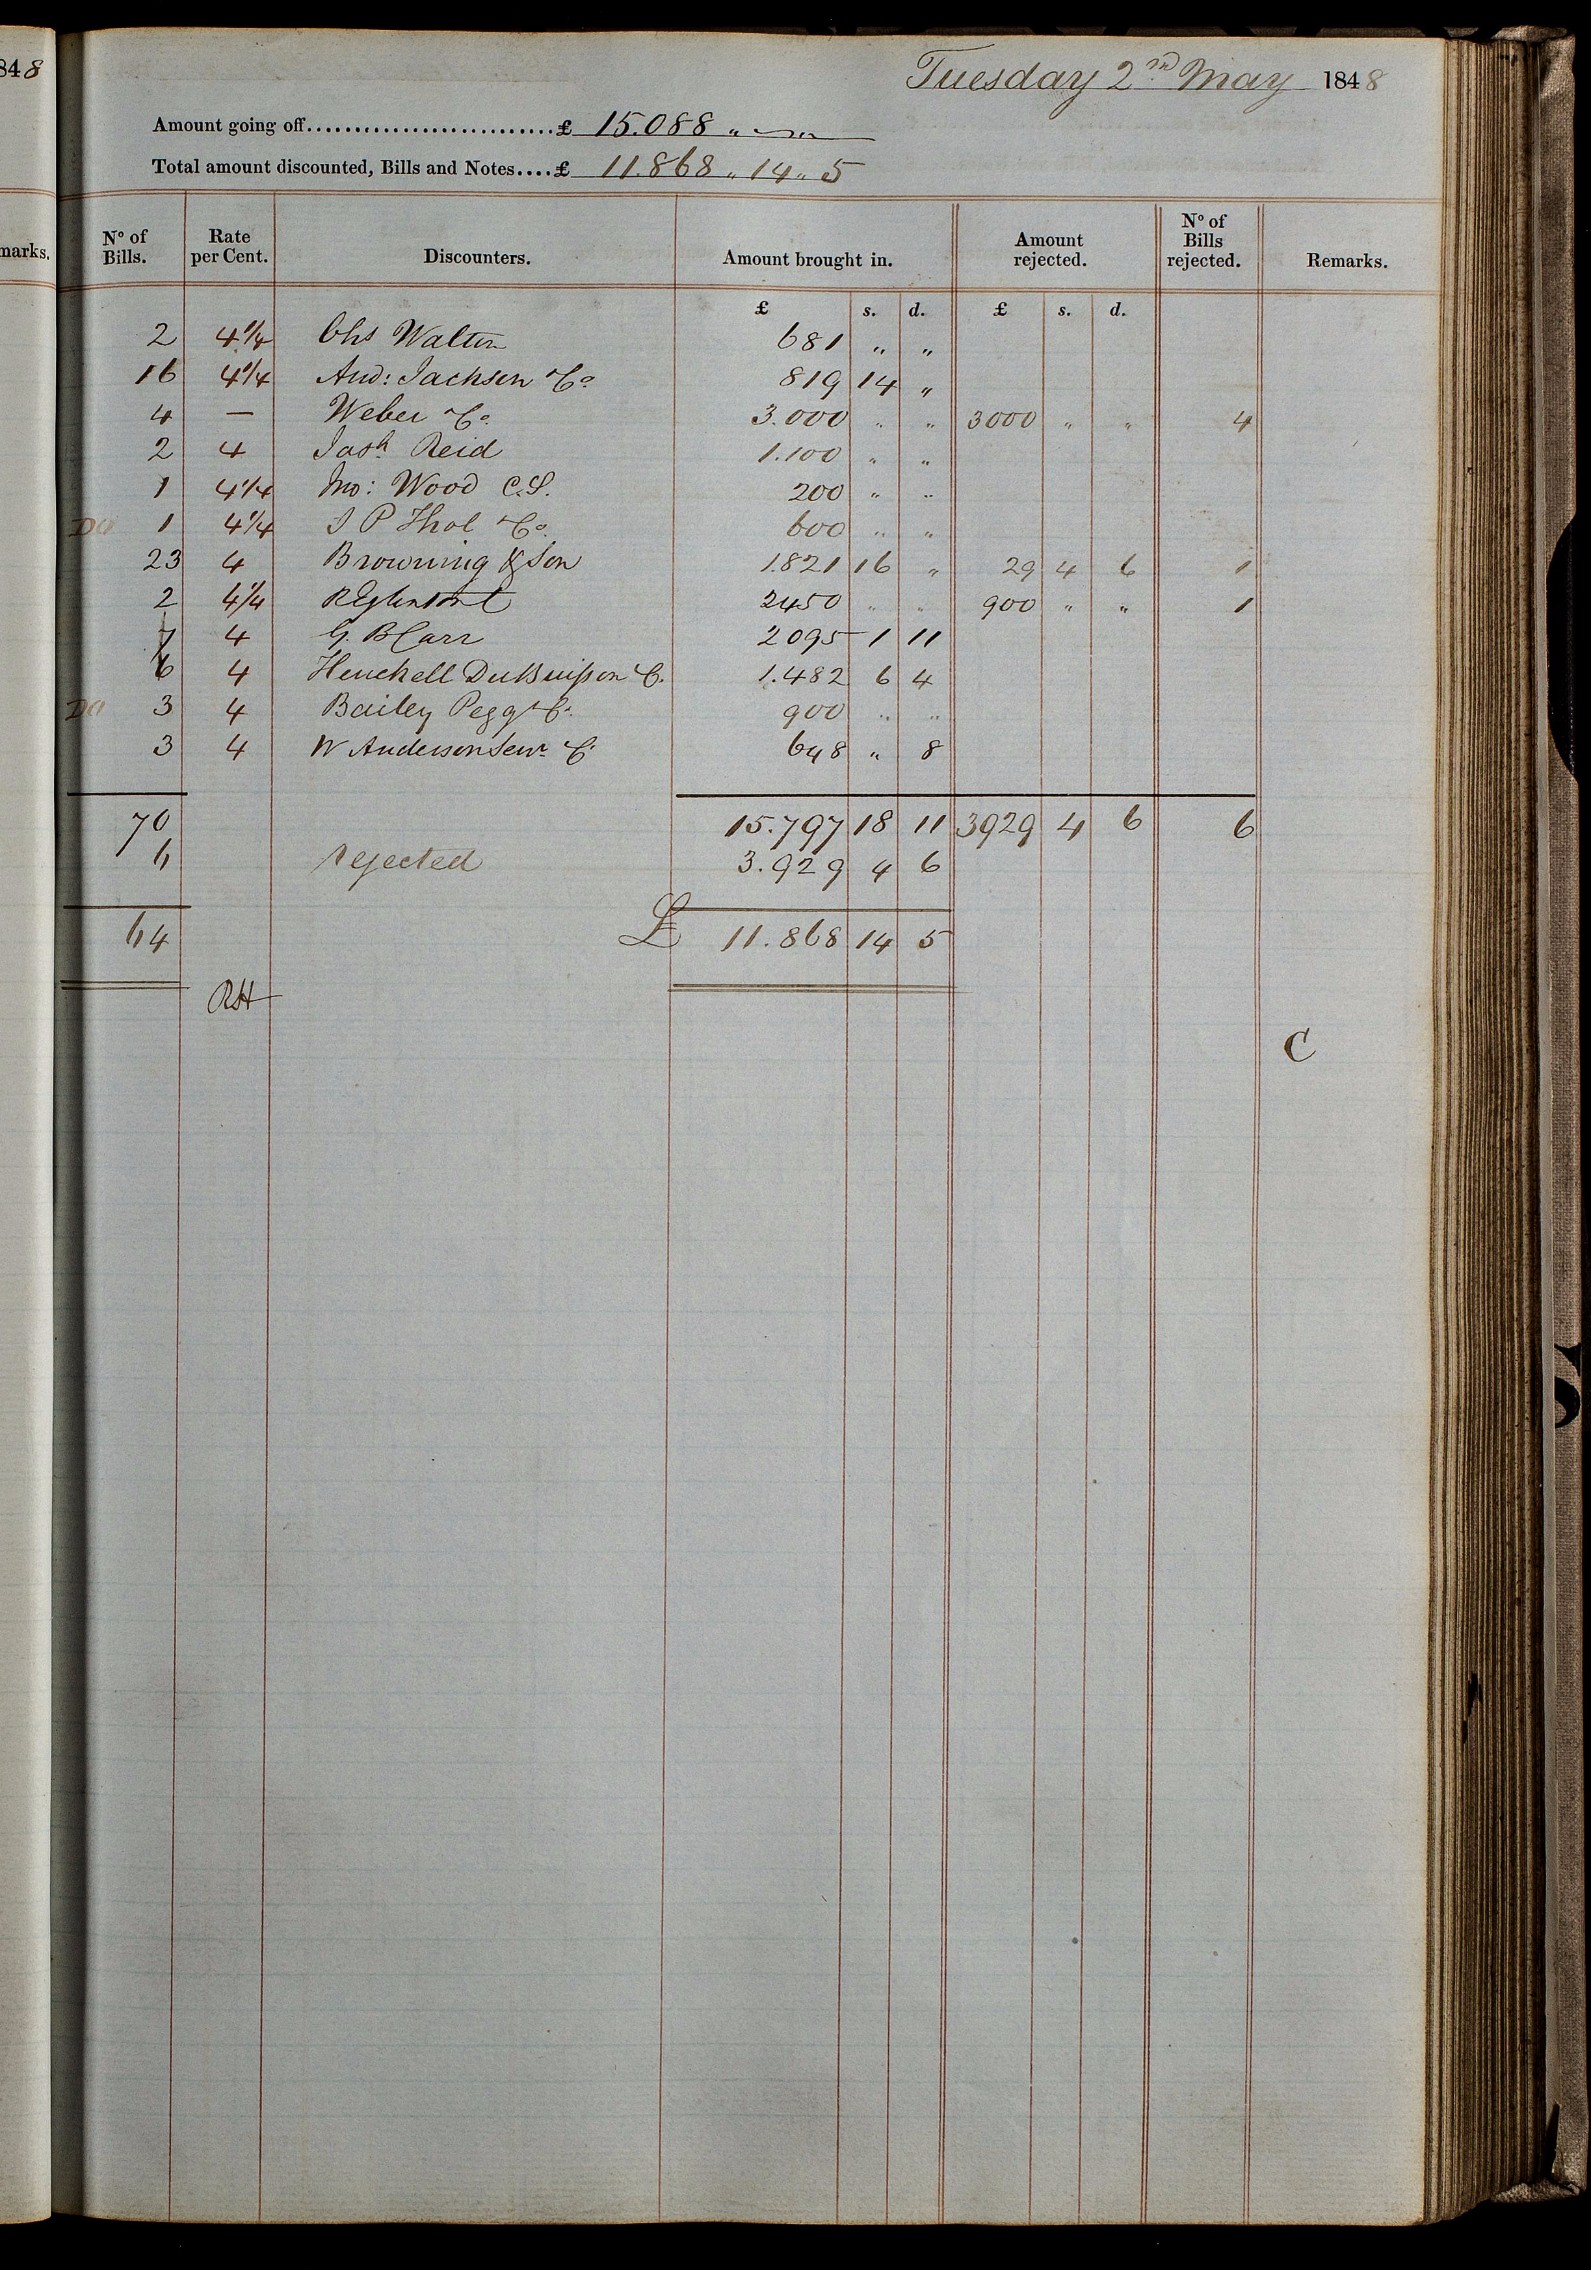 848
Tuesday 2nd May 1848
Amount going off..........................£ 15.088 " "
Total amount discounted, Bills and Notes....£ 11.868 " 14 " 5
marks.
No of Bills. Rate per Cent. Discounters. Amount brought in. Amount rejected. No of Bills rejected. Remarks.
£ s. d. £ s. d.
2 4 1/4 Chs Walton 681 " "
16 4 1/4 And: Jackson & Co 819 14 "
4 — Weber & Co 3.000 " " 3000 " " 4
2 4 Jash Reid 1.100 " "
1 4 1/4 Jno: Wood C.S. 200 " "
Do 1 4 1/4 J P Thol & Co 600 " "
23 4 Browning & Son 1.821 16 " 29 4 6 1
2 4 1/4 2450 " " 900 " " 1
7 4 G. B Carr 2095 1 11
6 4 Henckell DuBuisson & C. 1.482 6 4
Do 3 4 Bailey Pegg & C. 900 " "
3 4 W Anderson Senr & C. 648 " 8
70 15.797 18 11 3929 4 6 6
6 rejected 3.929 4 6
64 £ 11.868 14 5
RH
C